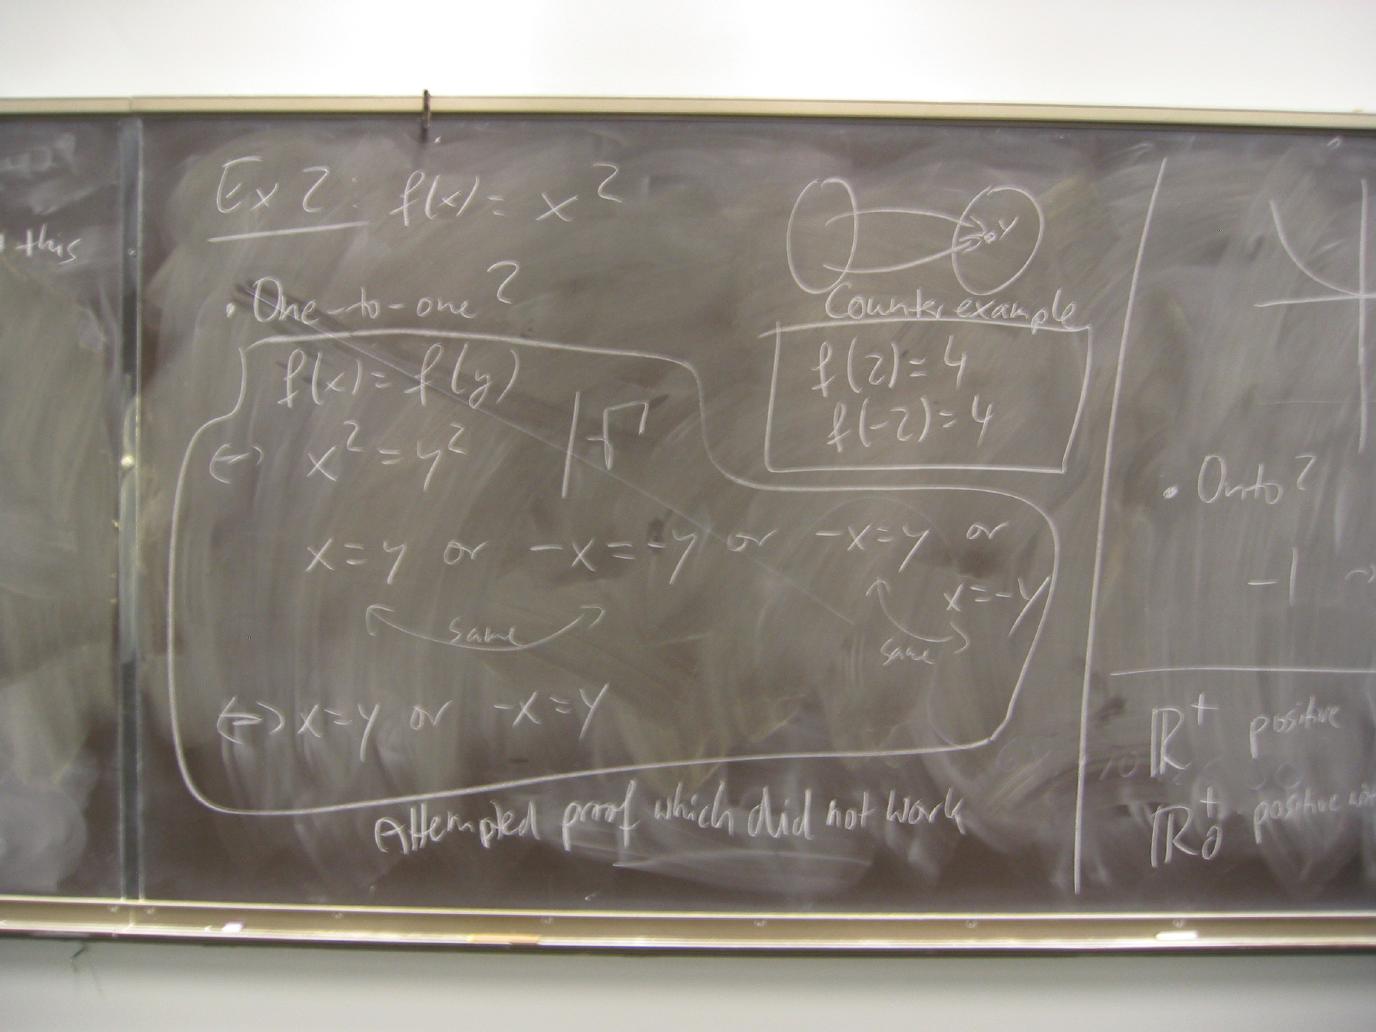 this
Ex 2: f(x) = x²
• One-to-one?
f(x) = f(y)
↔ x² = y² | √
x = y or -x = -y or -x = y or
x = -y
same
same
↔ x = y or -x = y
Attempted proof which did not work
y
Counterexample
f(2) = 4
f(-2) = 4
• Onto?
-1 →
ℝ⁺ positive
ℝ₀⁺ positive